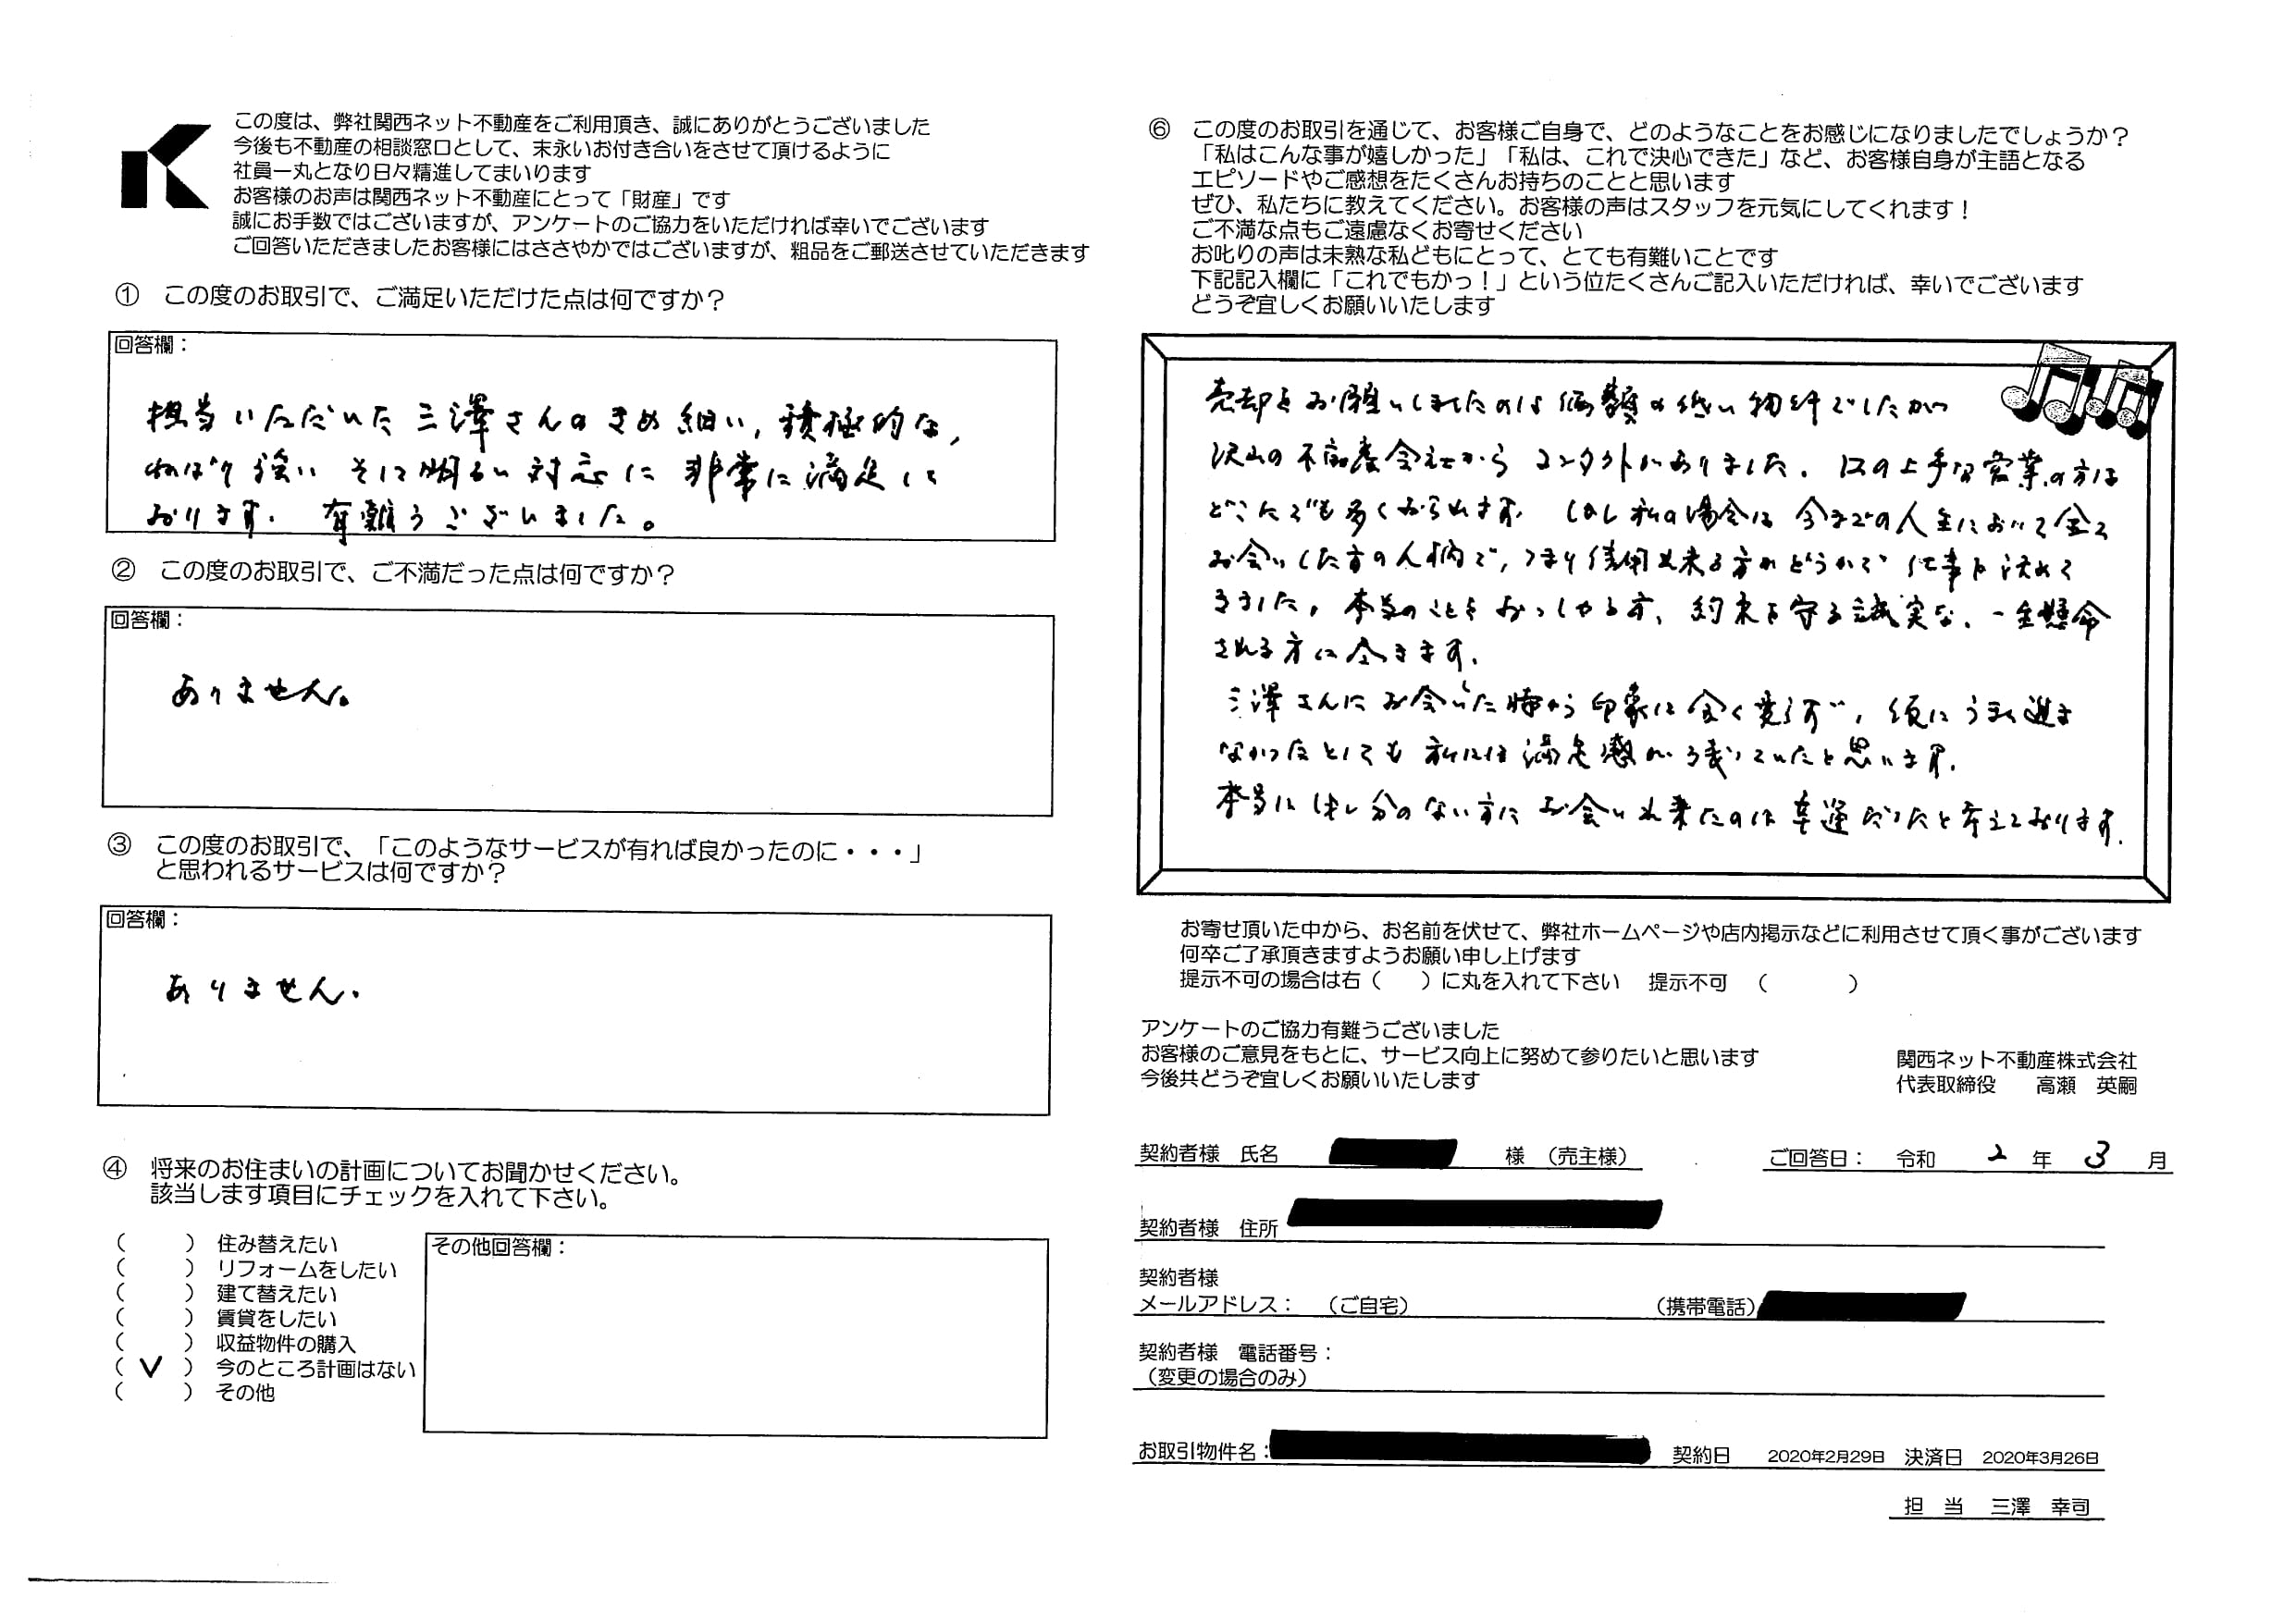 この度は、弊社関西ネット不動産をご利用頂き、誠にありがとうございました
今後も不動産の相談窓口として、末永いお付き合いをさせて頂けるように
社員一丸となり日々精進してまいります
お客様のお声は関西ネット不動産にとって「財産」です
誠にお手数ではございますが、アンケートのご協力をいただければ幸いでございます
ご回答いただきましたお客様にはささやかではございますが、粗品をご郵送させていただきます
① この度のお取引で、ご満足いただけた点は何ですか？
回答欄：
担当いただいた三澤さんのきめ細い，積極的な，
ねばり強い そして明るい対応に 非常に満足して
おります． 有難うございました。
② この度のお取引で、ご不満だった点は何ですか？
回答欄：
ありません。
③ この度のお取引で、「このようなサービスが有れば良かったのに・・・」
と思われるサービスは何ですか？
回答欄：
ありません．
④ 将来のお住まいの計画についてお聞かせください。
該当します項目にチェックを入れて下さい。
（ ） 住み替えたい
（ ） リフォームをしたい
（ ） 建て替えたい
（ ） 賃貸をしたい
（ ） 収益物件の購入
（ V ） 今のところ計画はない
（ ） その他
その他回答欄：
⑥ この度のお取引を通じて、お客様ご自身で、どのようなことをお感じになりましたでしょうか？
「私はこんな事が嬉しかった」「私は、これで決心できた」など、お客様自身が主語となる
エピソードやご感想をたくさんお持ちのことと思います
ぜひ、私たちに教えてください。お客様の声はスタッフを元気にしてくれます！
ご不満な点もご遠慮なくお寄せください
お叱りの声は未熟な私どもにとって、とても有難いことです
下記記入欄に「これでもかっ！」という位たくさんご記入いただければ、幸いでございます
どうぞ宜しくお願いいたします
売却をお願いしましたのは価額の低い物件でしたが
沢山の不動産会社から コンタクトがありました． 口の上手な営業の方は
どこにでも多くおられます． しかし私の場合は 今までの人生において全て
お会いした方の人柄で，つまり信用出来る方かどうかで 仕事を決めて
きました． 本当のことをおっしゃる方、約束を守る誠実な．一生懸命
される方に尽きます．
三澤さんにお会いした時から印象は全く変らず，仮にうまく進ま
なかったとしても 私には満足感が残っていたと思います．
本当に申し分のない方にお会い出来たのは幸運だったと考えております．
お寄せ頂いた中から、お名前を伏せて、弊社ホームページや店内掲示などに利用させて頂く事がございます
何卒ご了承頂きますようお願い申し上げます
提示不可の場合は右（ ）に丸を入れて下さい 提示不可 （ ）
アンケートのご協力有難うございました
お客様のご意見をもとに、サービス向上に努めて参りたいと思います
今後共どうぞ宜しくお願いいたします
関西ネット不動産株式会社
代表取締役 高瀬 英嗣
契約者様 氏名 様 （売主様） ご回答日： 令和 2 年 3 月
契約者様 住所
契約者様
メールアドレス： （ご自宅） （携帯電話）
契約者様 電話番号：
（変更の場合のみ）
お取引物件名： 契約日 2020年2月29日 決済日 2020年3月26日
担 当 三澤 幸司